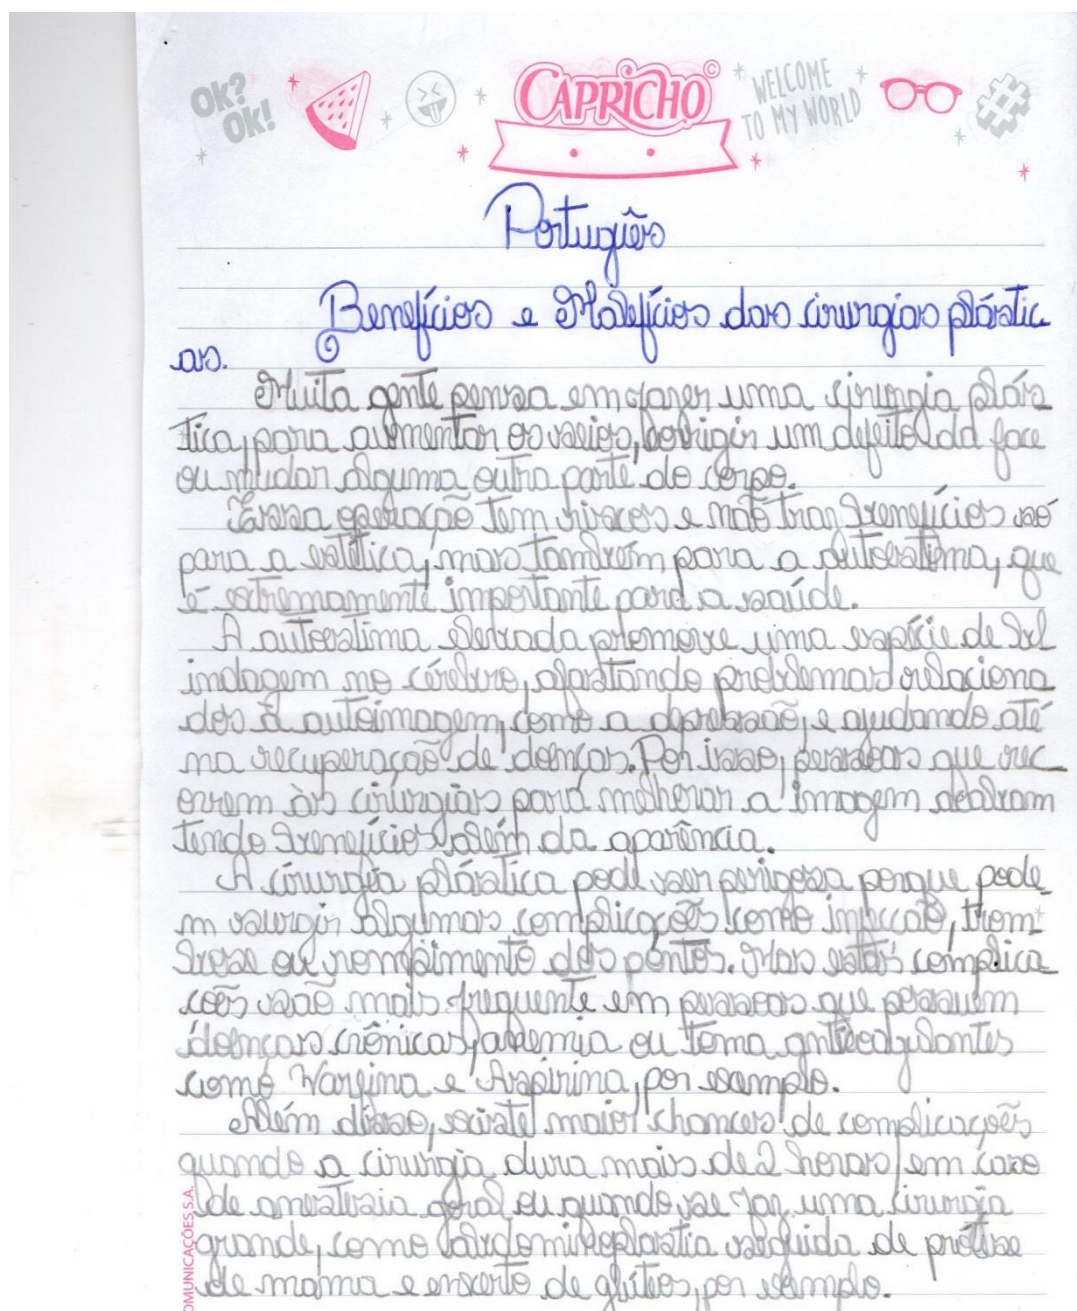 Ok?
Ok!
CAPRICHO©
WELCOME
TO MY WORLD
#
Português
Benefícios e Malefícios das cirurgias plástic
as.
Muita gente pensa em fazer uma cirurgia plás
tica, para aumentar os seios, corrigir um defeito da face
ou mudar alguma outra parte do corpo.
Essa operação tem riscos e não traz benefícios só
para a estética, mas também para a autoestima, que
é extremamente importante para a saúde.
A autoestima elevada promove uma espécie de bl
indagem no cérebro, afastando problemas relaciona
dos à autoimagem, como a depressão, e ajudando até
na recuperação de doenças. Por isso, pessoas que rec
orrem às cirurgias para melhorar a imagem acabam
tendo benefícios além da aparência.
A cirurgia plástica pode ser perigosa porque pode
m surgir algumas complicações como infecção, trom-
bose ou rompimento dos pontos. Mas estas complica
ções são mais frequente em pessoas que possuem
doenças crônicas, anemia ou toma anticoagulantes
como Varfina e Aspirina, por exemplo.
Além disso, existe maior chances de complicações
quando a cirurgia dura mais de 2 horas, em caso
de anestesia geral ou quando se faz uma cirurgia
grande, como seguida de prótese
de mama e enxerto de glúteos, por exemplo.
OMUNICAÇÕES S.A.